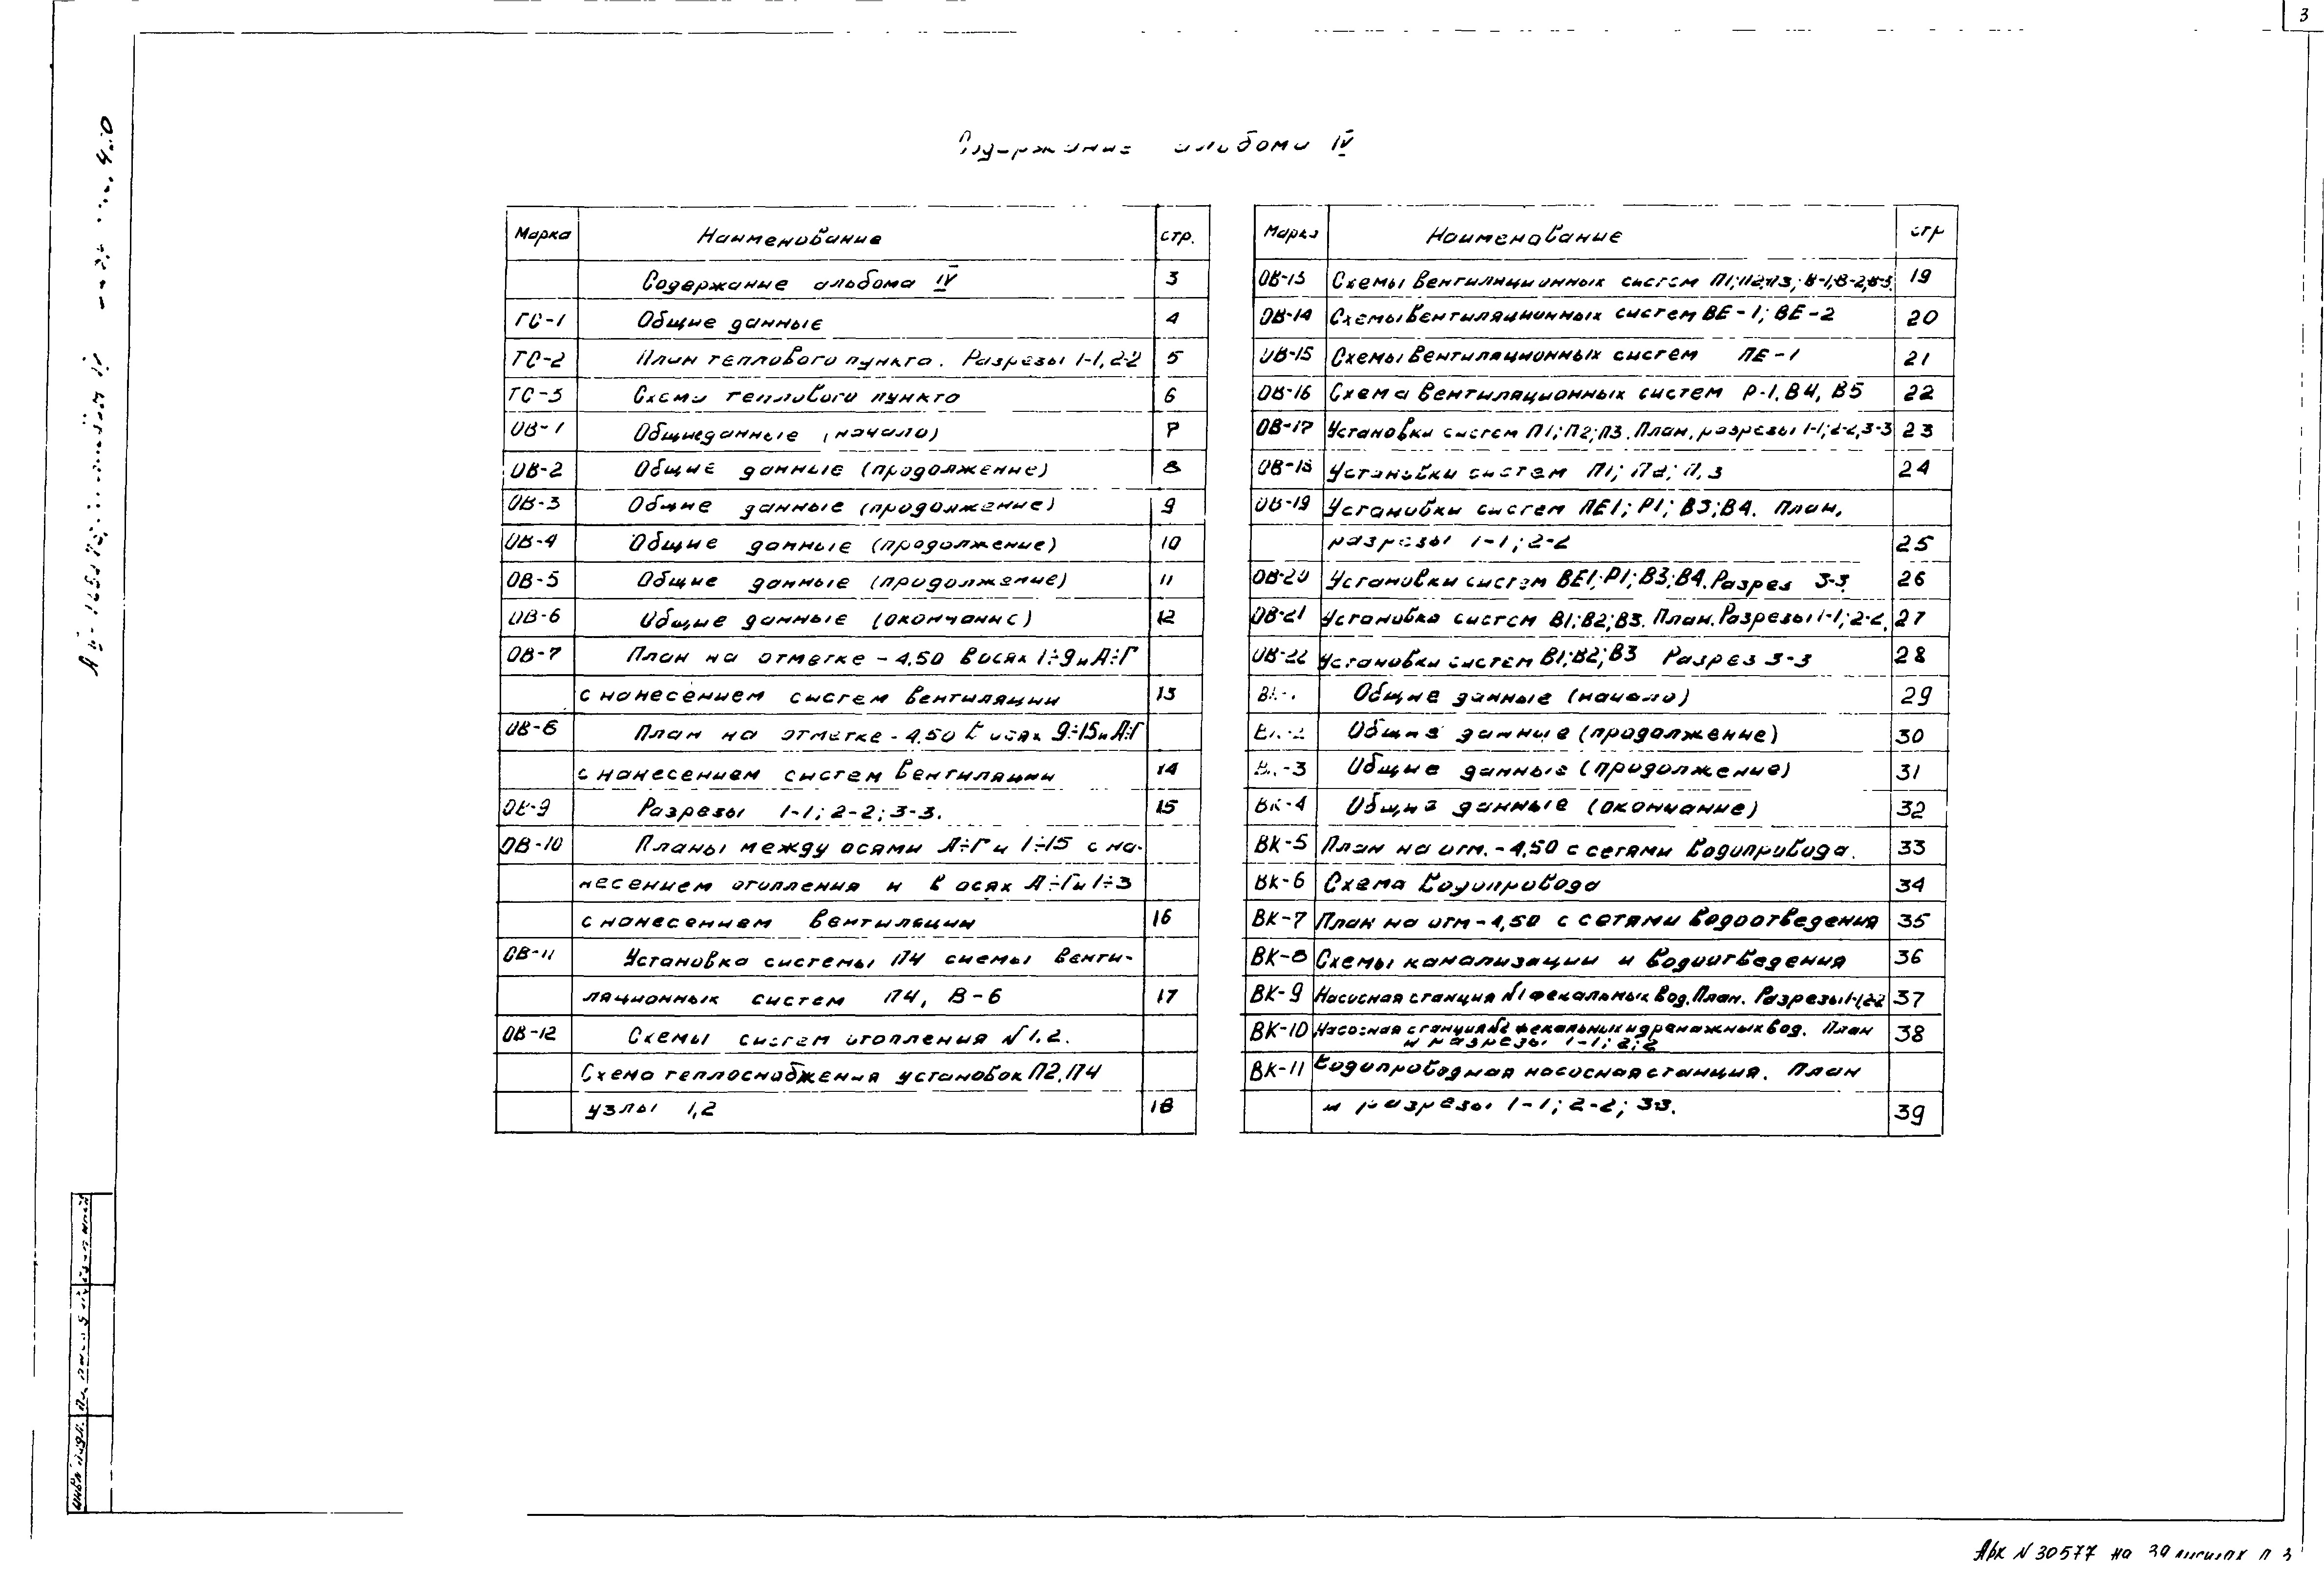 3
Содержание альбома IV
Марка Наименование стр.
Содержание альбома IV 3
ТС-1 Общие данные 4
ТС-2 План теплового пункта. Разрезы 1-1, 2-2 5
ТС-3 Схема теплового пункта 6
ОВ-1 Общие данные (начало) 7
ОВ-2 Общие данные (продолжение) 8
ОВ-3 Общие данные (продолжение) 9
ОВ-4 Общие данные (продолжение) 10
ОВ-5 Общие данные (продолжение) 11
ОВ-6 Общие данные (окончание) 12
ОВ-7 План на отметке -4.50 в осях 1÷9 и А÷Г
с нанесением систем вентиляции 13
ОВ-8 План на отметке -4.50 в осях 9÷15 и А÷Г
с нанесением систем вентиляции 14
ОВ-9 Разрезы 1-1; 2-2; 3-3. 15
ОВ-10 Планы между осями А÷Г и 1÷15 с на-
несением отопления и в осях А÷Г и 1÷3
с нанесением вентиляции 16
ОВ-11 Установка системы П4 схемы венти-
ляционных систем П4, В-6 17
ОВ-12 Схемы систем отопления N 1.2.
Схема теплоснабжения установок П2, П4
узлы 1,2 18
Марка Наименование стр
ОВ-13 Схемы вентиляционных систем П1; П2; П3; В-1; В-2; В-3. 19
ОВ-14 Схемы вентиляционных систем ВЕ-1; ВЕ-2 20
ОВ-15 Схемы вентиляционных систем ПЕ-1 21
ОВ-16 Схема вентиляционных систем Р-1, В4, В5 22
ОВ-17 Установки систем П1; П2; П3. План, разрезы 1-1; 2-2, 3-3 23
ОВ-18 Установки систем П1; П2; П.3 24
ОВ-19 Установки систем ПЕ1; Р1; В3; В4. План,
разрезы 1-1; 2-2 25
ОВ-20 Установки систем ВЕ1; Р1; В3; В4. Разрез 3-3. 26
ОВ-21 Установка систем В1; В2; В3. План. Разрезы 1-1; 2-2. 27
ОВ-22 Установки систем В1; В2; В3 Разрез 3-3 28
ВК-1 Общие данные (начало) 29
ВК-2 Общие данные (продолжение) 30
ВК-3 Общие данные (продолжение) 31
ВК-4 Общие данные (окончание) 32
ВК-5 План на отм. -4,50 с сетями водопровода. 33
ВК-6 Схема водопровода 34
ВК-7 План на отм -4,50 с сетями водоотведения 35
ВК-8 Схемы канализации и водоотведения 36
ВК-9 Насосная станция N1 фекальных вод. План. Разрезы 1-1, 2-2 37
ВК-10 Насосная станция N2 фекальных и дренажных вод. План 38
и разрезы 1-1; 2; 2
ВК-11 Водопроводная насосная станция. План
и разрезы 1-1; 2-2; 3-3. 39
Арх N 30577 на 39 листах л 3